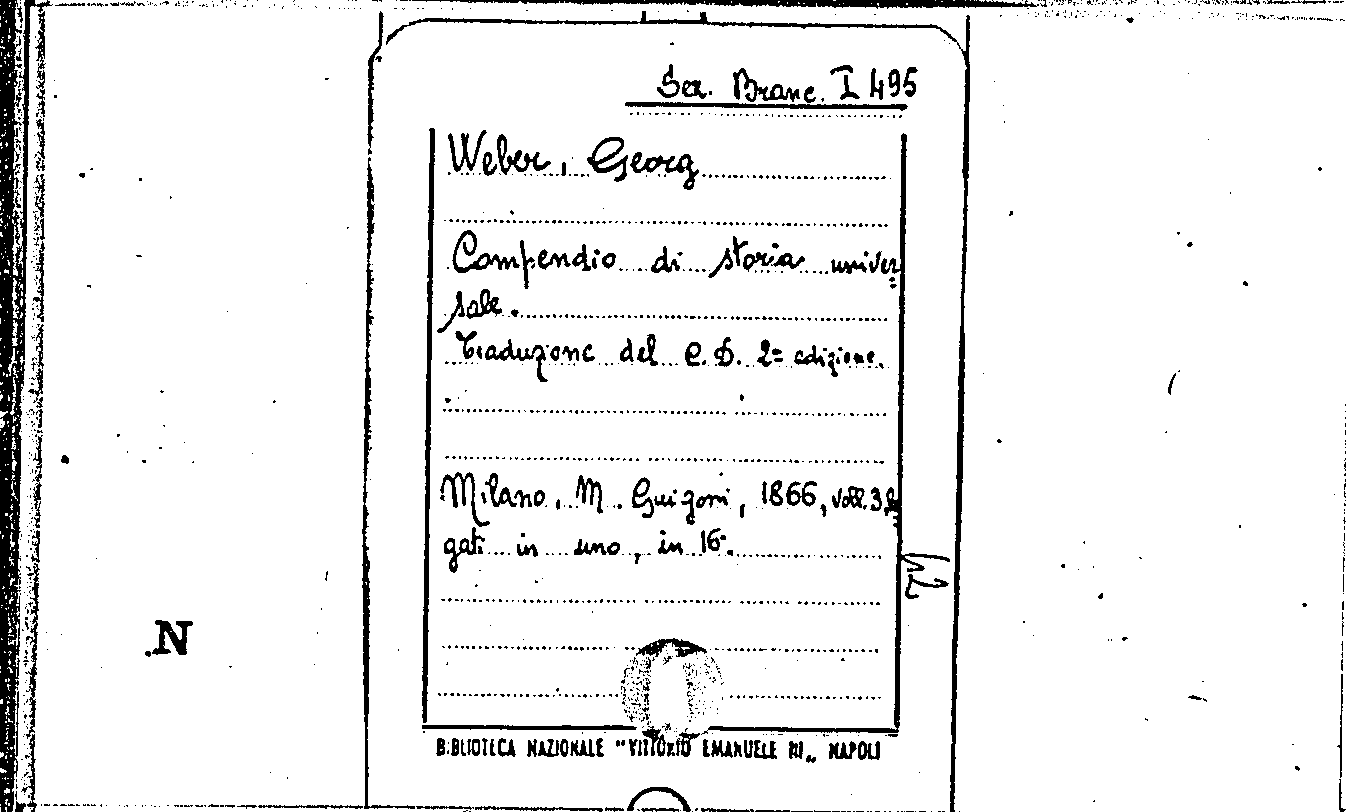 Ser. Branc. I 495
Weber, Georg
Compendio di storia univer
sale.
Traduzione del C. D. 2ª edizione.
Milano, M. Guigoni, 1866, voll. 3 le
gati in uno, in 16°.
42
N
BIBLIOTECA NAZIONALE "VITTORIO EMANUELE III„ NAPOLI